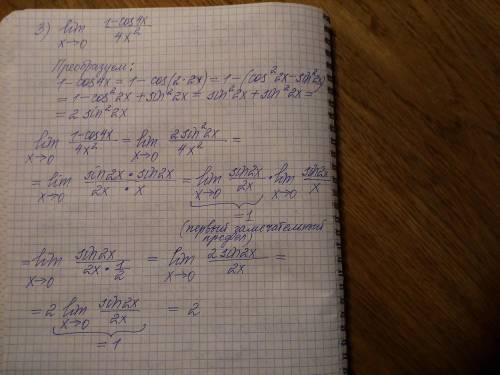 3) lim x→0 (1-cos4x)/(4x²)
Преобразуем:
1-cos4x = 1-cos(2·2x) = 1-(cos²2x-sin²2x)
= 1-cos²2x + sin²2x = sin²2x + sin²2x =
= 2sin²2x
lim x→0 (1-cos4x)/(4x²) = lim x→0 (2sin²2x)/(4x²) =
= lim x→0 (sin2x • sin2x)/(2x • x) = lim x→0 (sin2x)/(2x) • lim x→0 (sin2x)/x
=1
(первый замечательный
предел)
= lim x→0 (sin2x)/(2x•1/2) = lim x→0 (2sin2x)/(2x) =
= 2 lim x→0 (sin2x)/(2x) = 2
=1